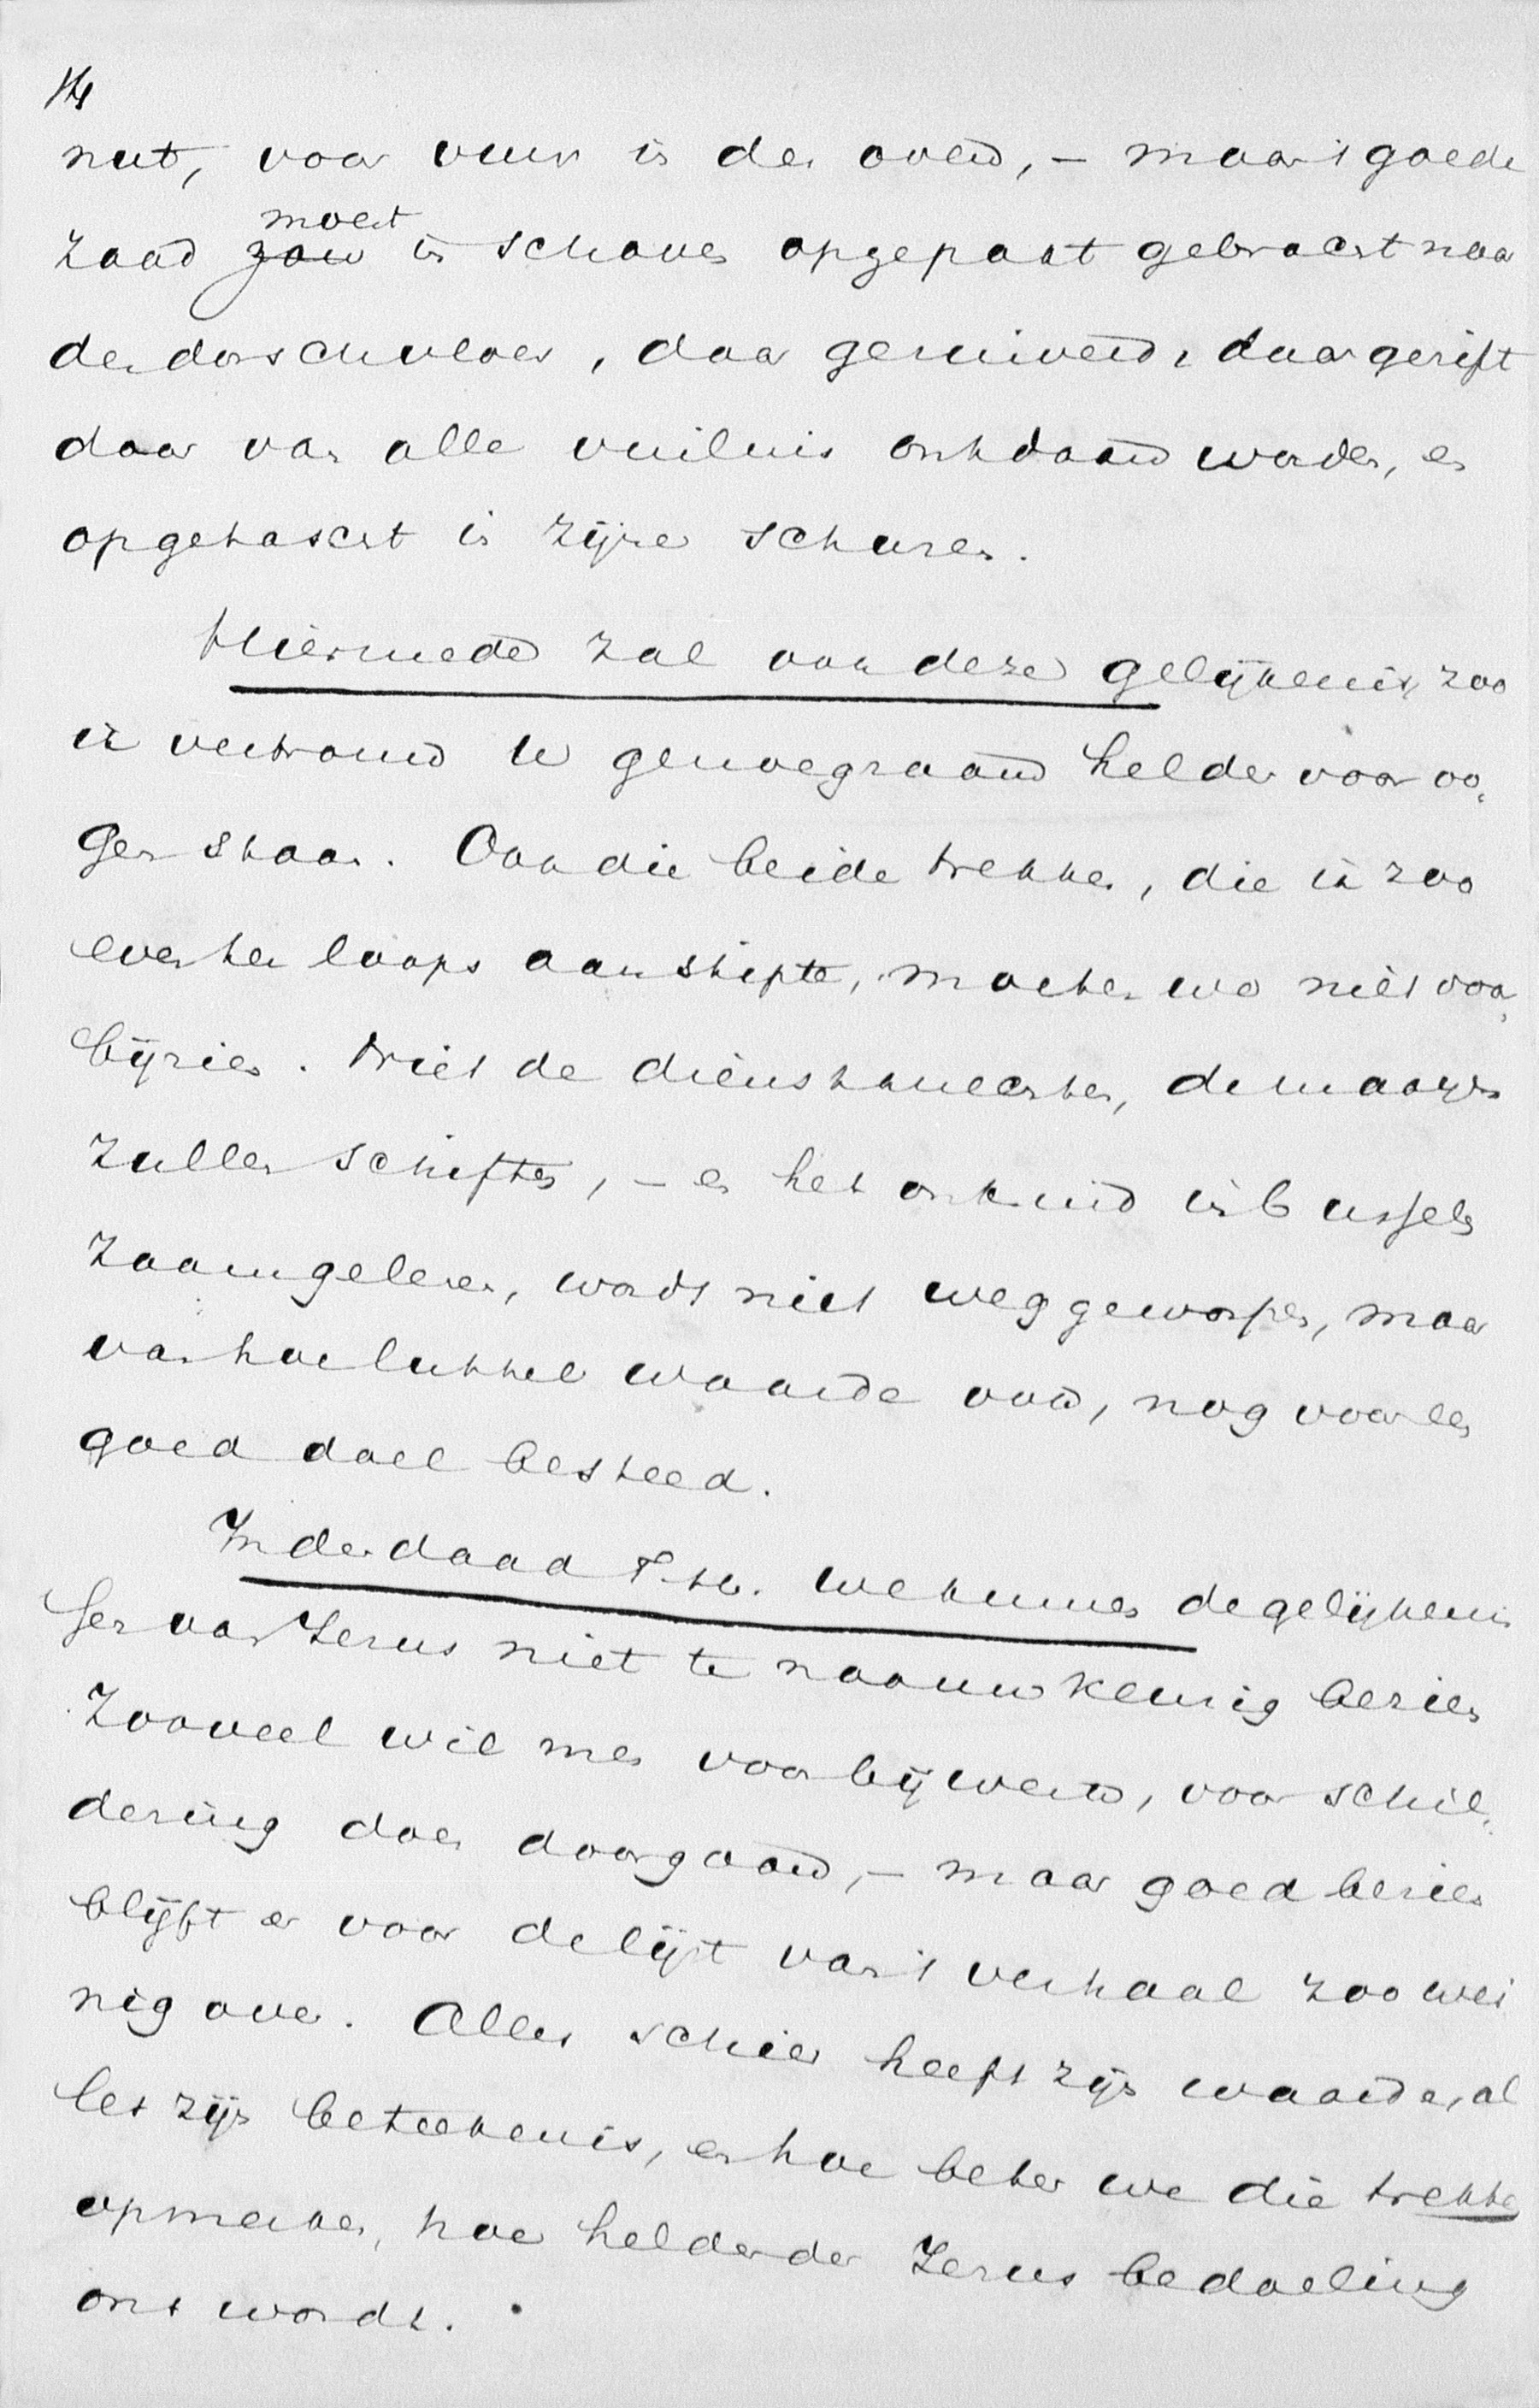 14
nut, voor vuur in den oven, – maar 't goede
moest
zaad zou in schoven opgepakt gebracht naar
den dorschvloer, daar gezuiverd, daar gezift
daar van alle vuilnis ontdaan worden, en
opgetast in zijne schuren.
Hiermede zal ook deze gelijkenis, zoo
ik vertrouw U genoegzaam helder voor oo„
gen staan. Ook die beide trekken, die ik zoo
even ter loops aanstipte, moeten we niet voor„
bijzien. Niet de dienstknechten, de maaijers
zullen schiften, – en het onkruid in bussels
zaamgelezen, wordt niet weggeworpen, maar
van hoe luttel waarde ook, nog voor een
goed doel besteed.
Inderdaad we kunnen de gelijkenis
sen van Jezus niet te naauwkeurig bezien
Zooveel wil men voor bijwerk, voor schil„
dering doen doorgaan, – maar goed bezien
blijft er voor de lijst van 't verhaal zoo wei
nig over. Alles schier heeft zijn waarde, al
les zijn beteekenis, en hoe beter we die trekken
opmerken, hoe helderder Jezus bedoeling
ons wordt.